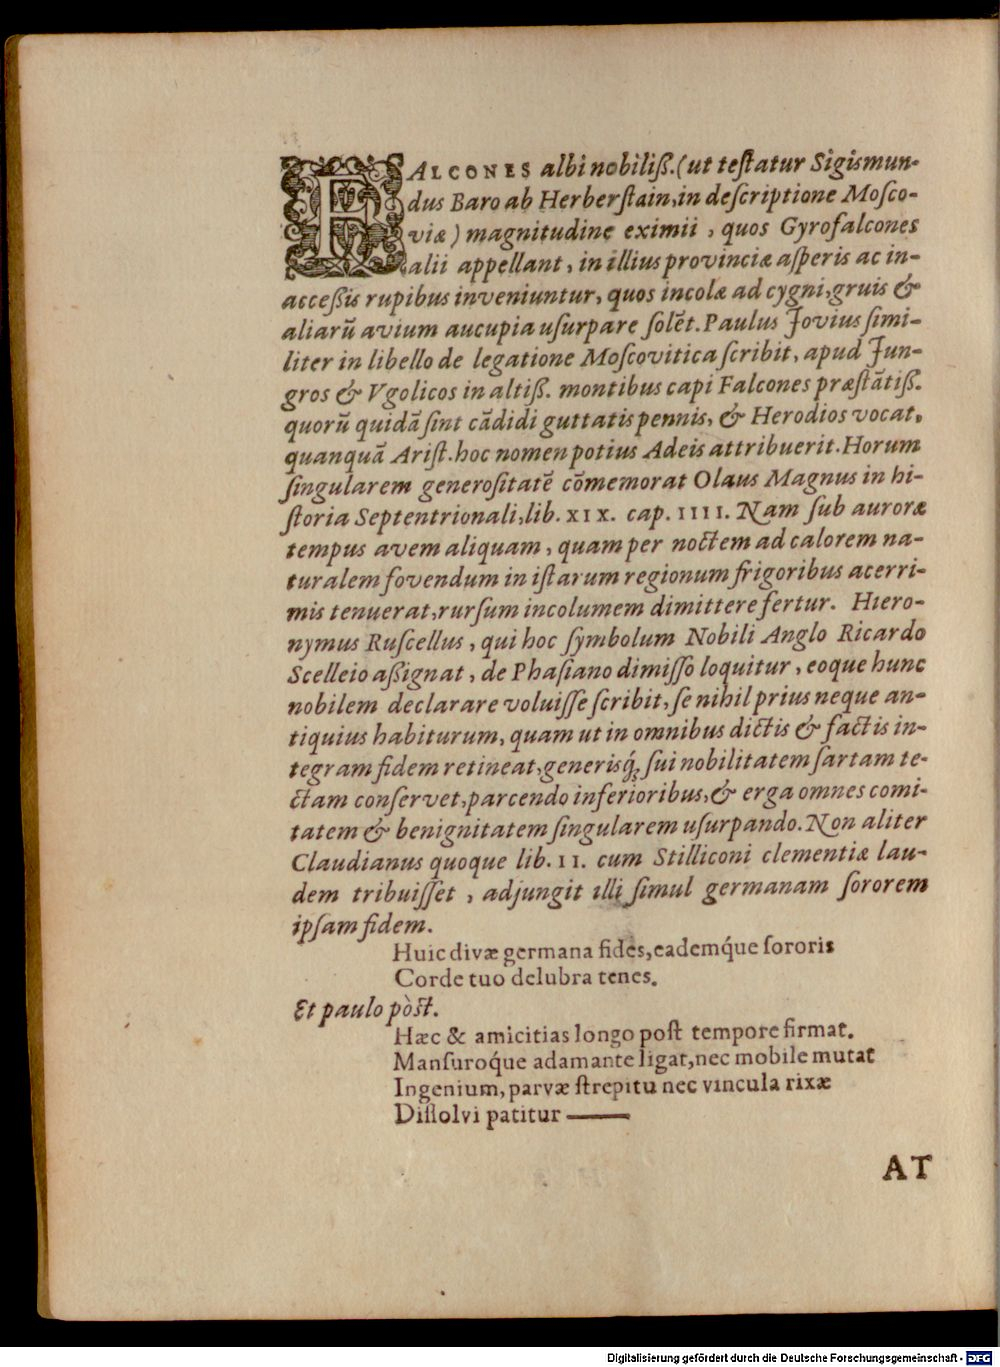 FALCONES albi nobiliß. (ut teſtatur Sigismun-
dus Baro ab Herberſtain, in deſcriptione Moſco-
viæ) magnitudine eximii, quos Gyrofalcones
alii appellant, in illius provinciæ aſperis ac in-
acceßis rupibus inveniuntur, quos incolæ ad cygni, gruis &
aliarũ avium aucupia uſurpare ſolẽt. Paulus Jovius ſimi-
liter in libello de legatione Moſcovitica ſcribit, apud Jun-
gros & Vgolicos in altiß. montibus capi Falcones præſtãtiß.
quorũ quidã ſint cãdidi guttatis pennis, & Herodios vocat,
quanquã Ariſt. hoc nomen potius Adeis attribuerit. Horum
ſingularem generoſitatẽ cõmemorat Olaus Magnus in hi-
ſtoria Septentrionali, lib. XIX. cap. IIII. Nam ſub auroræ
tempus avem aliquam, quam per noctem ad calorem na-
turalem fovendum in iſtarum regionum frigoribus acerri-
mis tenuerat, rurſum incolumem dimittere fertur. Hiero-
nymus Ruſcellus, qui hoc ſymbolum Nobili Anglo Ricardo
Scelleio aßignat, de Phaſiano dimiſſo loquitur, eoque hunc
nobilem declarare voluiſſe ſcribit, ſe nihil prius neque an-
tiquius habiturum, quam ut in omnibus dictis & factis in-
tegram fidem retineat, generisq́; ſui nobilitatem ſartam te-
ctam conſervet, parcendo inferioribus, & erga omnes comi-
tatem & benignitatem ſingularem uſurpando. Non aliter
Claudianus quoque lib. II. cum Stilliconi clementiæ lau-
dem tribuiſſet, adjungit illi ſimul germanam ſororem
ipſam fidem.
Huic divæ germana fides, eademq́ue ſororis
Corde tuo delubra tenes.
Et paulo pòſt.
Hæc & amicitias longo poſt tempore firmat.
Manſuroq́ue adamante ligat, nec mobile mutat
Ingenium, parvæ ſtrepitu nec vincula rixæ
Diſſolvi patitur ——
AT
Digitalisierung gefördert durch die Deutsche Forschungsgemeinschaft - DFG